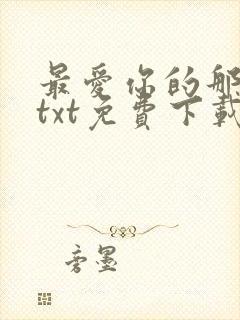 最爱你的那
txt免费下载
旁墨